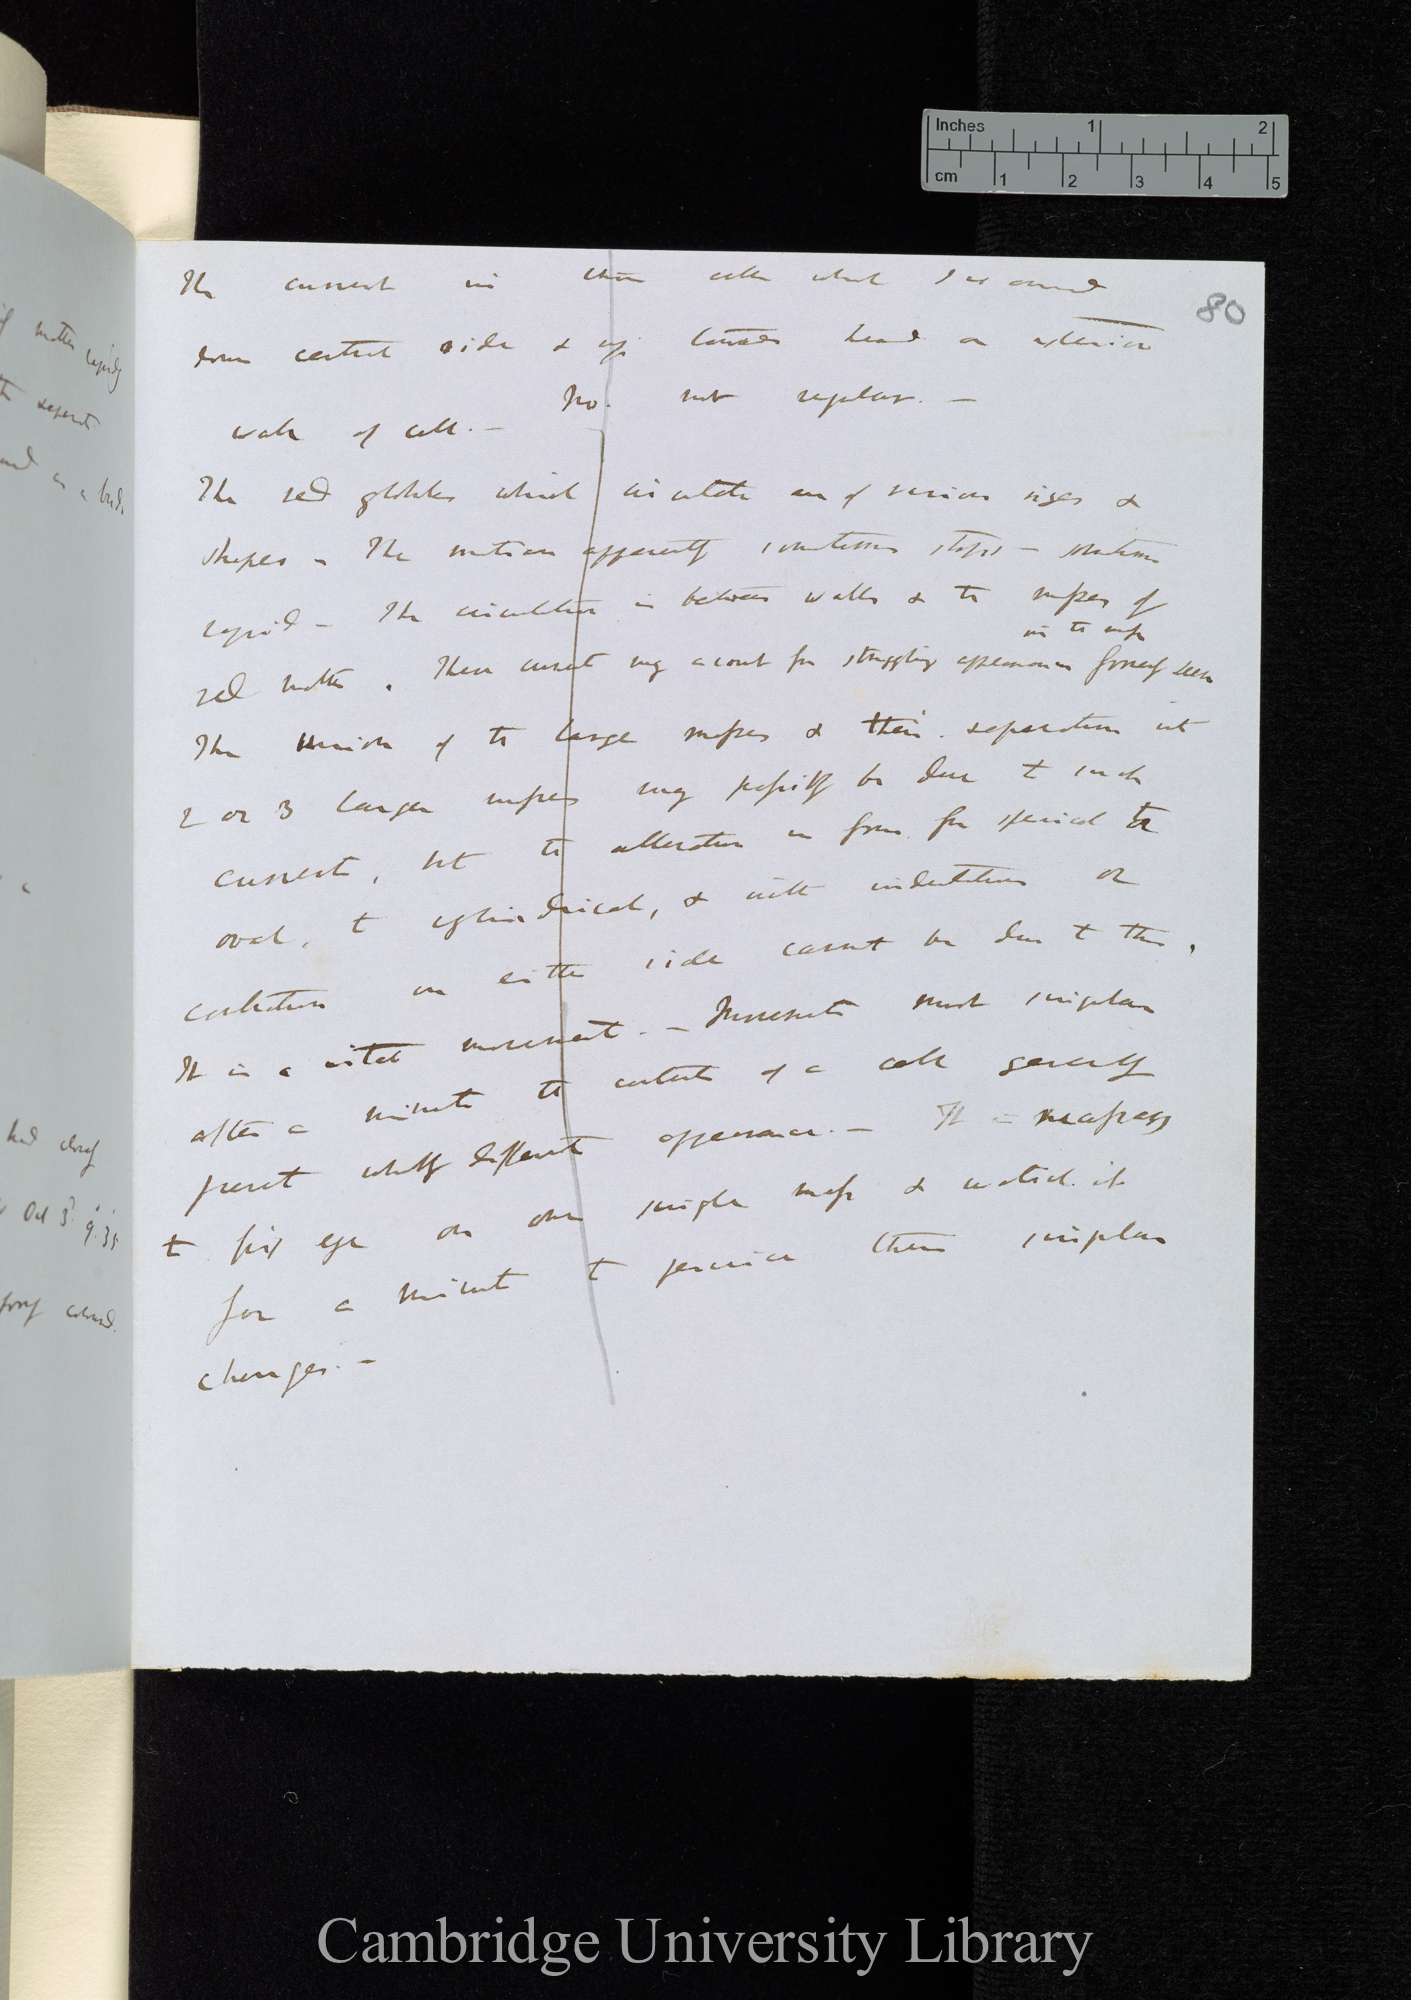 Inches 1 2
cm 1 2 3 4 5
80
The current in these cells which I is round
down central side & up towards head on exterior
No. not regular. —
walls of cell. —
The red globules which circulate are of various sizes &
shapes — The motion apparently sometimes stops — sometimes
rapid — The circulation is between walls & the masses of
in the mass
red matter. These current may account for struggling appearance formerly seen
The union of the large masses & their separation into
2 or 3 larger masses may possibly be due to such
current, but the alteration in form from spherical to
oval, to cylindrical, & with indentations or
contractions on either side cannot be due to this,
It is a vital movement. — Movements most singular
after a minute the contents of a cell generally
present wholly different appearance. — It is necessary
to fix eye on one single mass & watch it
for a minute to perceive these singular
changes. —
of matter rapidly
the separate
and as a
had
Oct 3d. 9. 35
Cambridge University Library